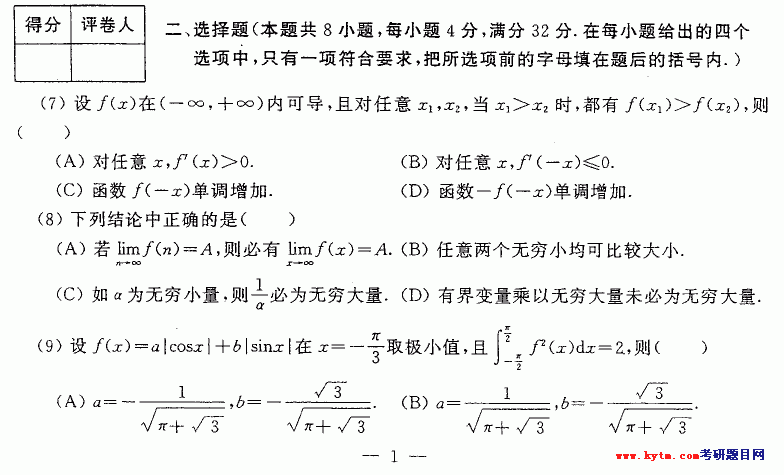 得分 评卷人
二、选择题(本题共8小题,每小题4分,满分32分.在每小题给出的四个
选项中,只有一项符合要求,把所选项前的字母填在题后的括号内.)
(7) 设 f(x)在(-∞,+∞)内可导,且对任意 x₁,x₂,当 x₁>x₂ 时,都有 f(x₁)>f(x₂),则
( )
(A) 对任意 x,f′(x)>0. (B) 对任意 x,f′(-x)≤0.
(C) 函数 f(-x)单调增加. (D) 函数-f(-x)单调增加.
(8) 下列结论中正确的是( )
(A) 若 lim_{n→∞} f(n)=A,则必有 lim_{x→∞} f(x)=A. (B) 任意两个无穷小均可比较大小.
(C) 如 α 为无穷小量,则 1/α 必为无穷大量. (D) 有界变量乘以无穷大量未必为无穷大量.
(9) 设 f(x)=a|cosx|+b|sinx|在 x=-π/3 取极小值,且 ∫_{-π/2}^{π/2} f²(x)dx=2,则( )
(A) a=-1/√(π+√3),b=-√3/√(π+√3). (B) a=1/√(π+√3),b=-√3/√(π+√3).
— 1 —
www.kytm.com考研题目网